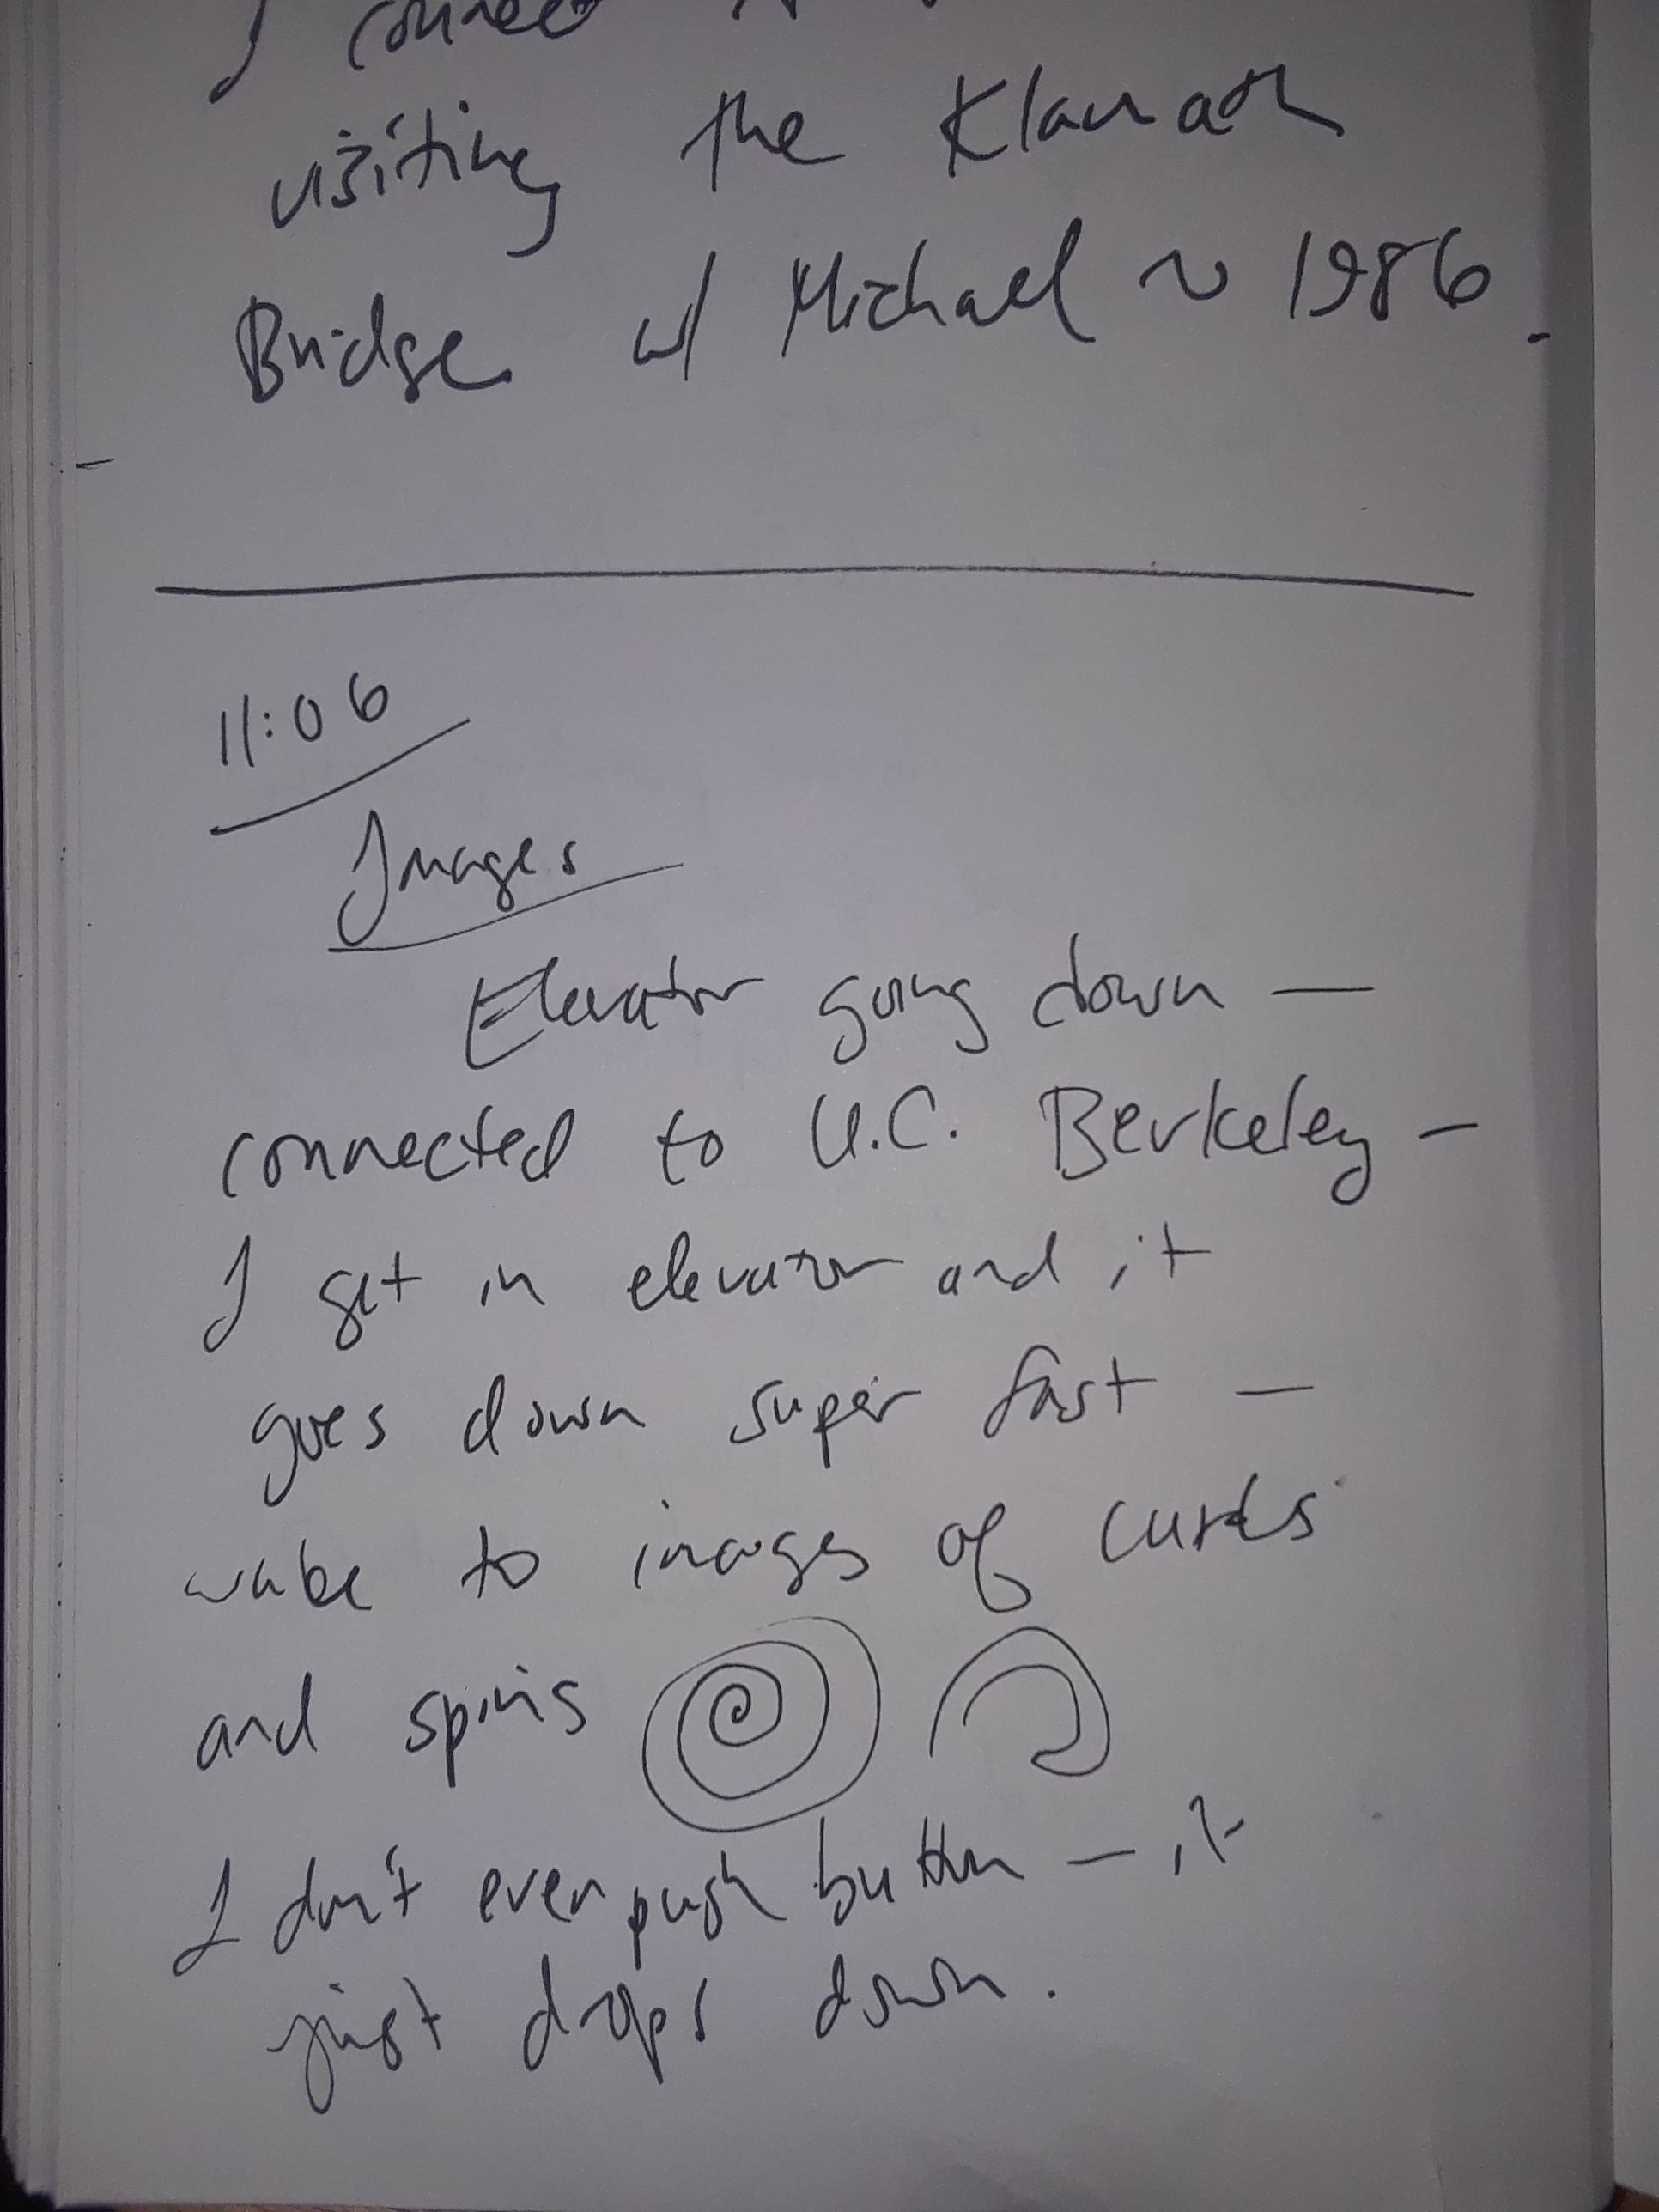 I connect
visiting the Klamath
Bridge w/ Michael ~ 1986.
11:06
Images
Elevator going down —
connected to U.C. Berkeley —
I get in elevator and it
goes down super fast —
wake to images of
and
I don't even push button — it
just drops down.